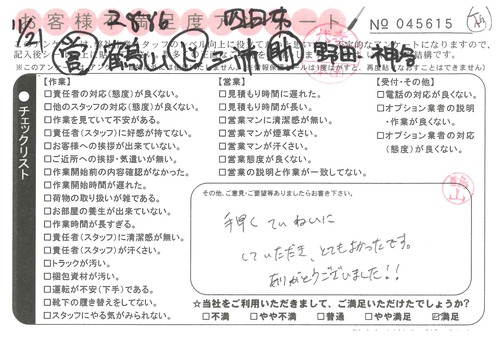 お客様満足度アンケート
2886 四日市
№ 045615
営 鶴山 助 野田 神谷
チェックリスト
【作業】
□責任者の対応(態度)が良くない。
□他のスタッフの対応(態度)が良くない。
□作業を見ていて不安がある。
□責任者(スタッフ)に好感が持てない。
□お客様への挨拶が出来ていない。
□ご近所への挨拶・気遣いが無い。
□作業開始前の内容確認がなかった。
□作業開始時間が遅れた。
□荷物の取り扱いが雑である。
□お部屋の養生が出来ていない。
□作業時間が長すぎる。
□責任者(スタッフ)に清潔感が無い。
□責任者(スタッフ)が汗くさい。
□トラックが汚い。
□梱包資材が汚い。
□運転が不安(下手)である。
□靴下の履き替えをしてない。
□スタッフにやる気がみられない。
【営業】
□見積もり時間に遅れた。
□見積もり時間が長い。
□営業マンに清潔感が無い。
□営業マンが煙草くさい。
□営業マンが汗くさい。
□営業態度が良くない。
□営業の説明と作業が一致してない。
【受付・その他】
□電話の対応が良くない。
□オプション業者の説明
・作業が良くない。
□オプション業者の対応
(態度)が良くない。
その他、ご意見・ご要望等ありましたらお書き下さい。
手早くていねいに
していただき、とてもよかったです。
ありがとうございました!!
☆当社をご利用いただきまして、ご満足いただけたでしょうか?
□不満 □やや不満 □普通 □やや満足 ☑満足